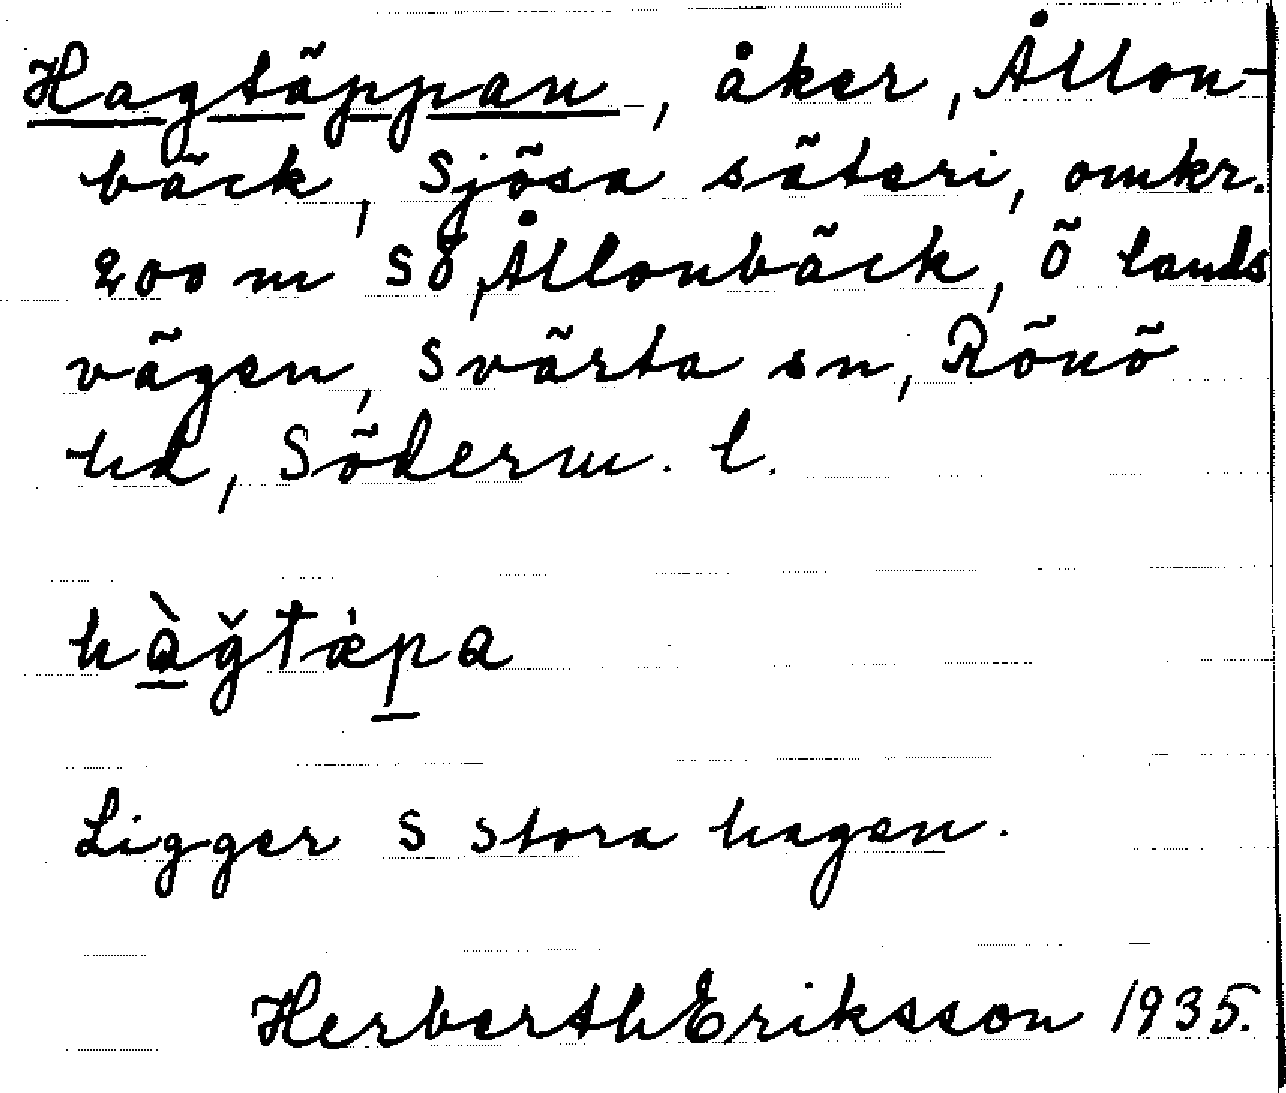 Hagtäppan, åker, Ållon-
bäck, Sjösa säteri, omkr.
200 m SÖ Ållonbäck, Ö lands
vägen, Svärta sn, Rönö
hd, Söderm. l.
hàğtæ̀pa
Ligger S Stora hagen.
Herberth Eriksson 1935.